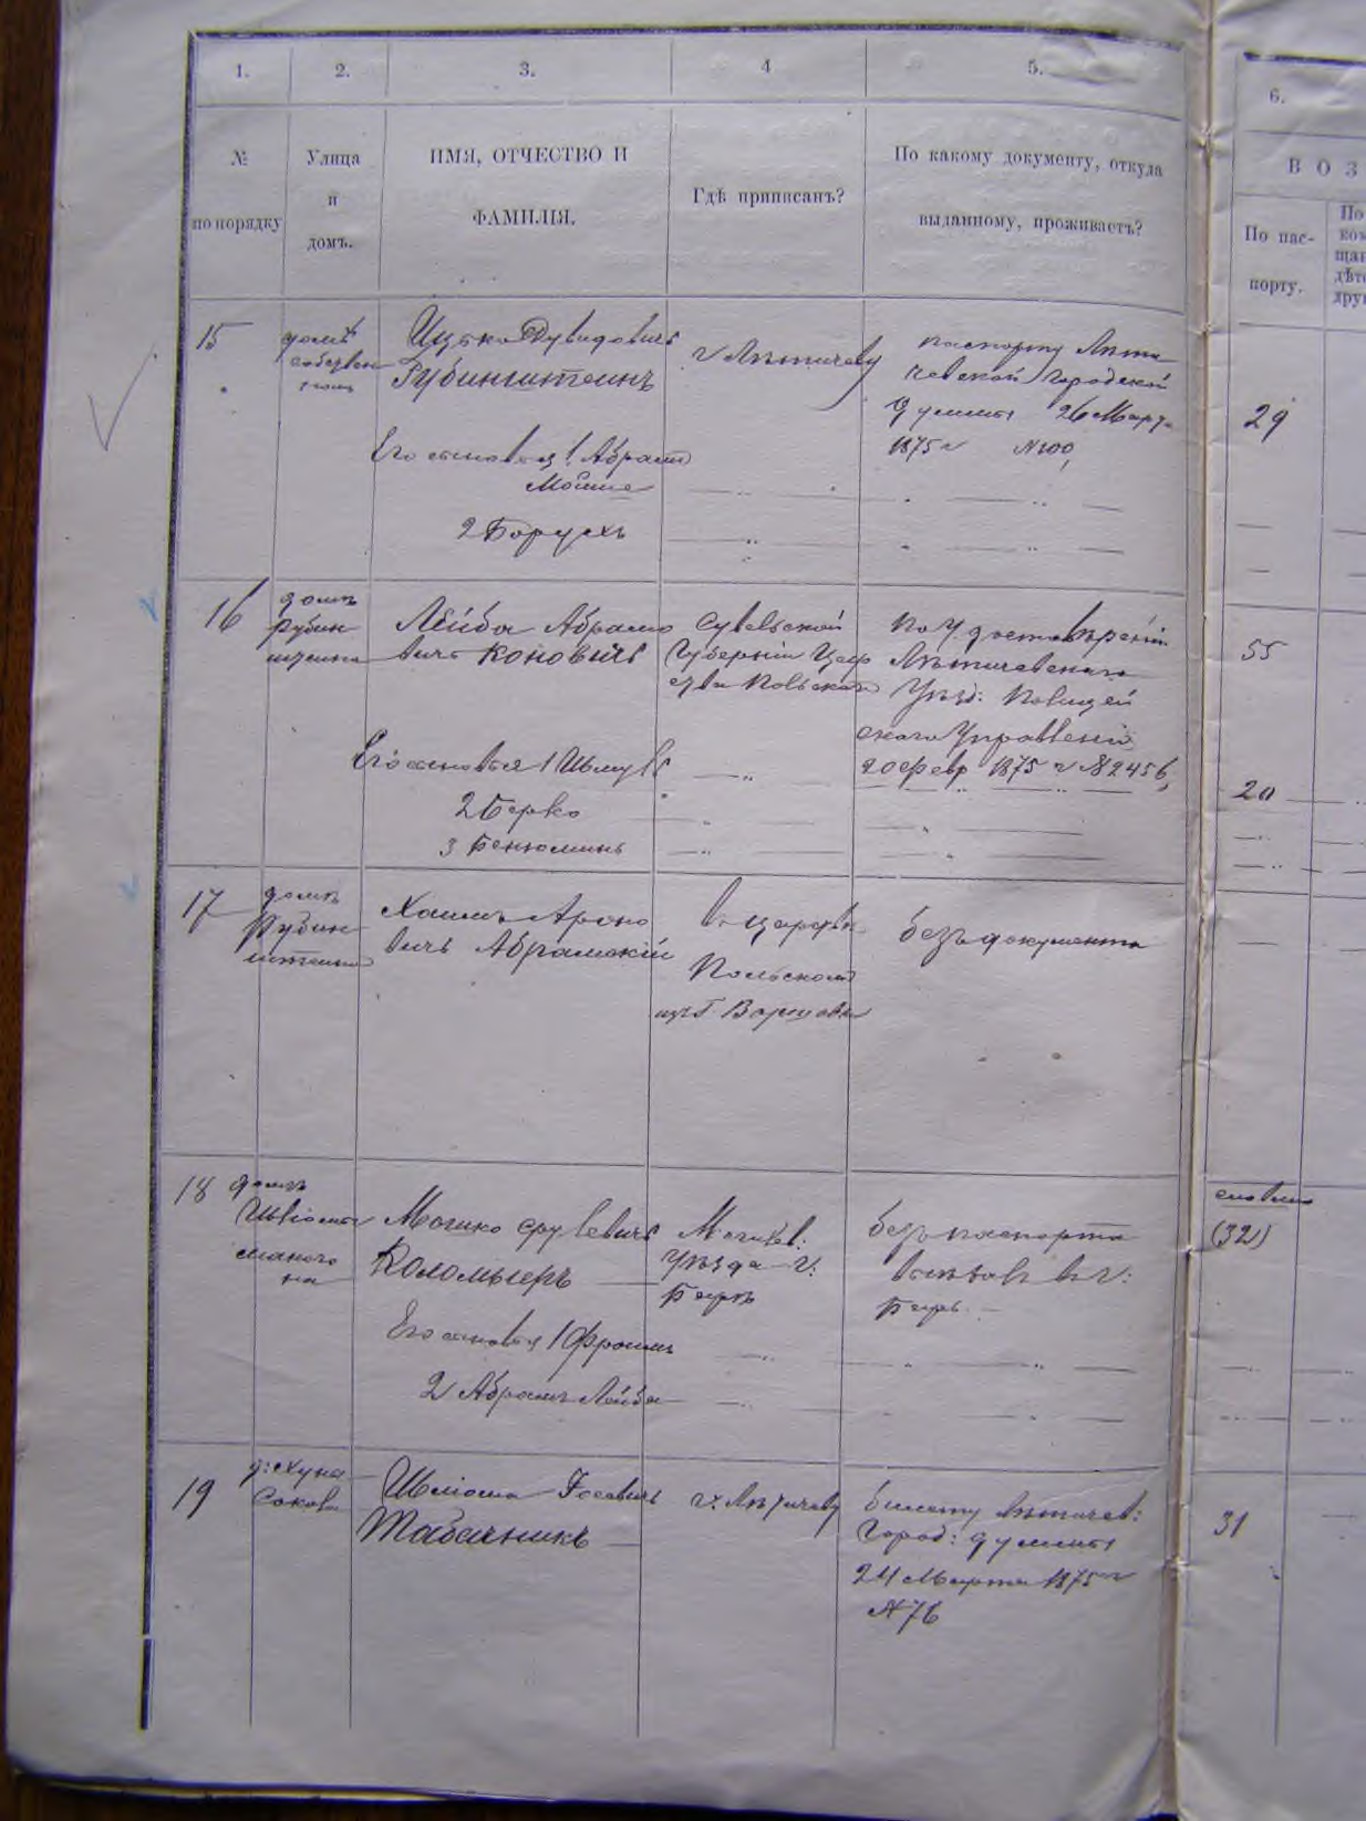 1. 2. 3. 4 5. 6.
№ по порядку
Улица и домъ.
ИМЯ, ОТЧЕСТВО И ФАМИЛІЯ.
Гдѣ приписанъ?
По какому документу, откуда выданному, проживаетъ?
ВОЗ
По пас-
порту.
По
15
домъ
собствен
Ицько Дувидовичъ
Рубинштейнъ
г Летичеву
паспорту Лети
чевской Городской
Думы 26 Марта
1875 г №100,
29
Его сыновья 1. Абрамъ
Мошко
2 Борухъ
16
домъ
Рубин
штейна
Лейба Абрамо
вичъ Коновичъ
Сувалской
Губерніи Цар
ства Польскаго
По Удостоверенію
Летичевскаго
Уезд: Полицей
скаго Управленія
20 Февр 1875 г №2456,
55
Его сыновья 1 Шмуль
20
2 Берко
3 Бенюминъ
17
домъ
Рубин
штейна
Хаимъ Ароно
вичъ Абрамскій
въ царстве
Польскомъ
изъ г. Варшавы
безъ документа
18
домъ
Мошко Срулевичъ
Коломыеръ
Могилев:
уезда г.
Баръ
безъ паспорта
въ г:
Баръ
(32)
Его сыновья 1 Фроимъ
2 Абрамъ Лейба
19
Шліома Іосевичъ
Табачникъ
г. Летичеву
билету Летичев:
Город: думы
24 Марта 1875 г
№76
31